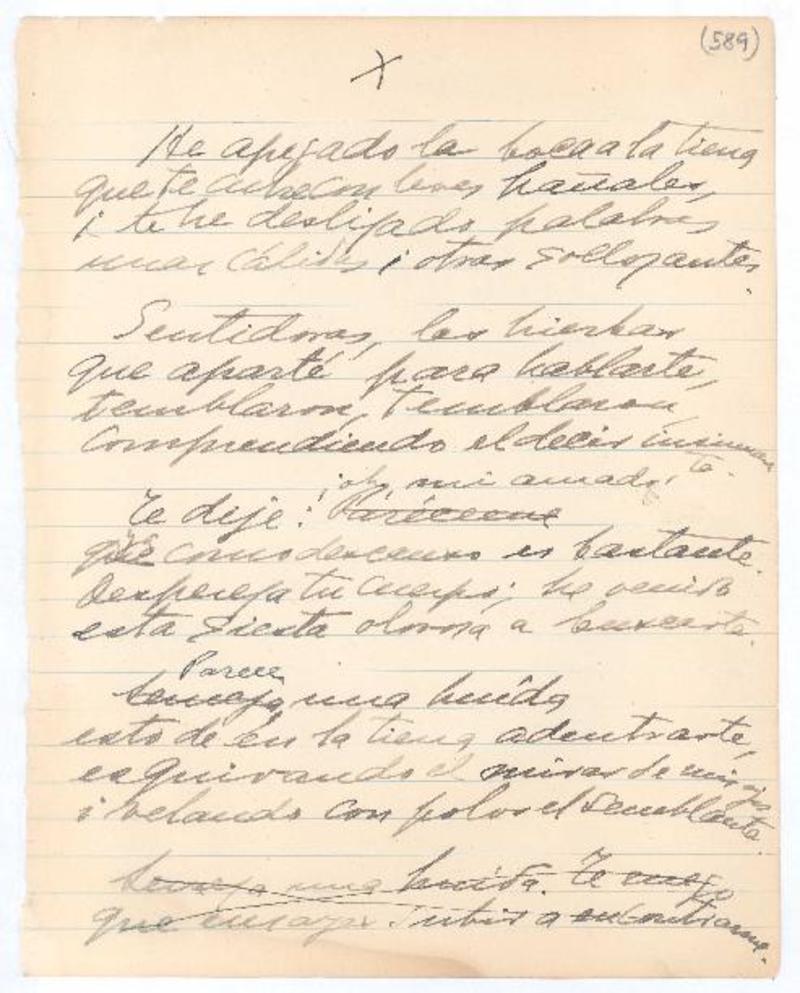 (589)
X
He apegado la boca a la tierra
que te cubre con leves pañales,
i te he desligado palabras
unas cálidas i otras sollozantes.
Sentidoras, las hierbas
que aparté para hablarte,
temblaron, temblaron,
comprendiendo el decir
¡oh, mi amado!
Te dije: Paréceme
que como descanso es bastante.
Despereza tu cuerpo; he venido
esta siesta olorosa a buscarte.
Parece
Semeja una huída
esto de en la tierra adentrarte,
esquivando el mirar de mis ojos
i velando con polvo el semblante.
Semeja una huída. Te ruego
que ensayes subir a encontrarme.